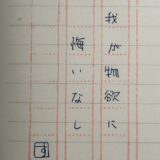 我が物欲に
悔いなし
す